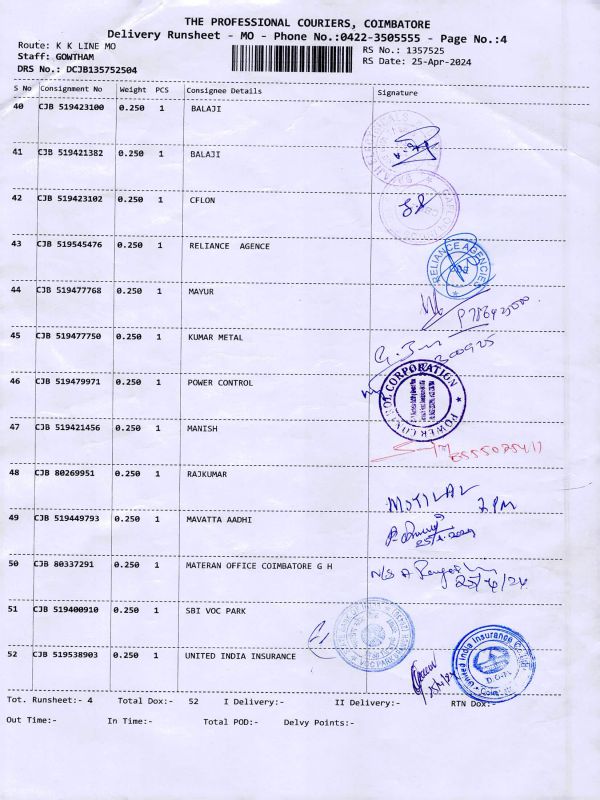 THE PROFESSIONAL COURIERS, COIMBATORE
Delivery Runsheet - MO - Phone No.:0422-3505555 - Page No.:4
Route: K K LINE MO
RS No.: 1357525
Staff: GOWTHAM
RS Date: 25-Apr-2024
DRS No.: DCJB135752504
S No Consignment No Weight PCS Consignee Details Signature
40 CJB 519423100 0.250 1 BALAJI
41 CJB 519421382 0.250 1 BALAJI
42 CJB 519423102 0.250 1 CFLON
43 CJB 519545476 0.250 1 RELIANCE AGENCE
RELIANCE AGENCIES
44 CJB 519477768 0.250 1 MAYUR
45 CJB 519477750 0.250 1 KUMAR METAL
46 CJB 519479971 0.250 1 POWER CONTROL
POWER CONTROL CORPORATION
47 CJB 519421456 0.250 1 MANISH
48 CJB 80269951 0.250 1 RAJKUMAR
MOTILAL 2 PM
49 CJB 519449793 0.250 1 MAVATTA AADHI
25/4/2024
50 CJB 80337291 0.250 1 MATERAN OFFICE COIMBATORE G H
25/4/24
51 CJB 519400910 0.250 1 SBI VOC PARK
52 CJB 519538903 0.250 1 UNITED INDIA INSURANCE
United India Insurance Co. Ltd.
Tot. Runsheet:- 4 Total Dox:- 52 I Delivery:- II Delivery:- RTN Dox:-
Out Time:- In Time:- Total POD:- Delvy Points:-